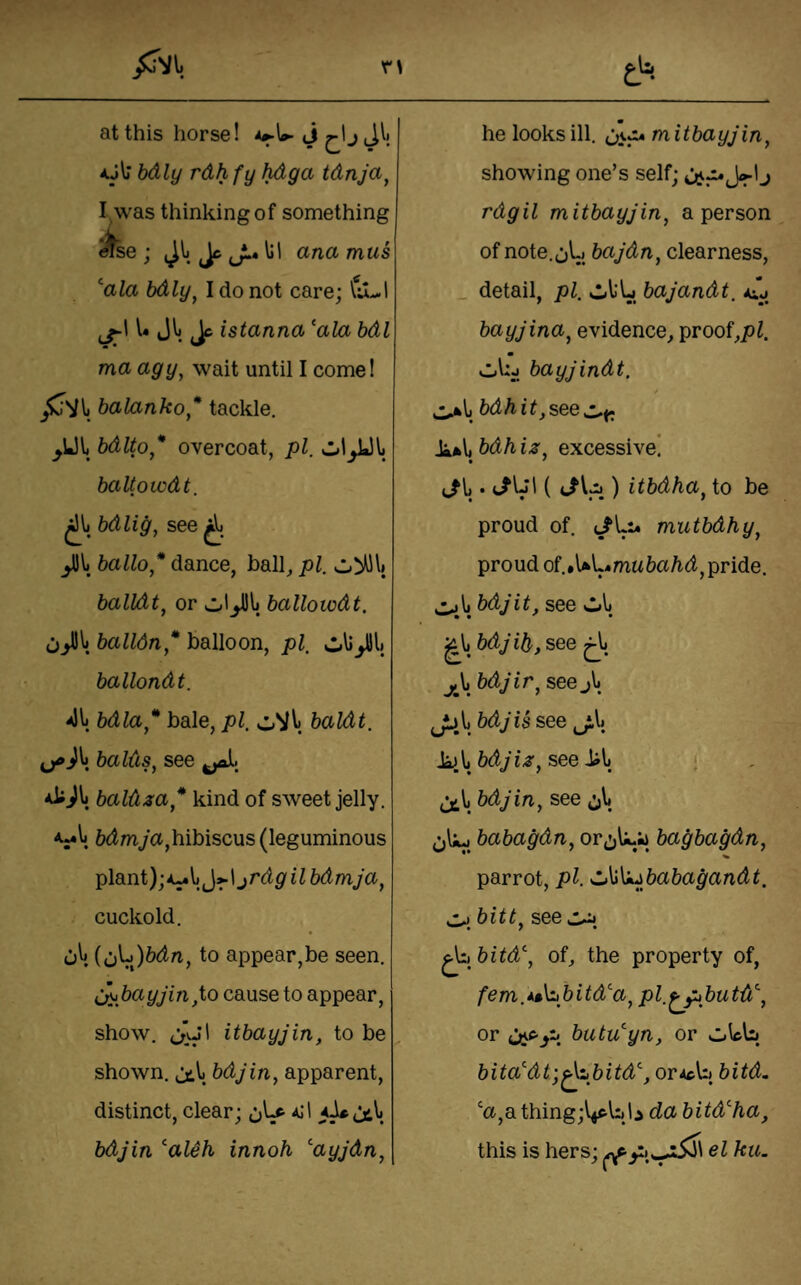 بالانكو ٣١ بتاع
at this horse! بالى راح فى حاجه
تانيه bâly râḥ fy ḥâga tânja,
I was thinking of something
else; انا مش على بالى ana muś
‘ala bâly, I do not care; استنا
على بال ما اجى istanna ‘ala bâl
ma agy, wait until I come!
بالانكو balanko,* tackle.
بالطو bâlṭo,* overcoat, pl. بالطوات
balṭowât.
بالغ bâliġ, see بلغ
باللو ballo,* dance, ball, pl. باللات
ballât, or باللوات ballowât.
باللون ballôn,* balloon, pl. باللونات
ballonât.
باله bâla,* bale, pl. بالات balât.
بالوص balûṣ, see بلص
بالوظه balûza,* kind of sweet jelly.
باميه bâmja, hibiscus (leguminous
plant); راجل باميه râgil bâmja,
cuckold.
بان (يبان) bân, to appear, be seen.
بين bayjin, to cause to appear,
show. اتبين itbayjin, to be
shown. باين bâjin, apparent,
distinct, clear; باين عليه انه عيان
bâjin ‘alêh innoh ‘ayjân,
he looks ill. متبين mitbayjin,
showing one's self; راجل متبين
râgil mitbayjin, a person
of note. بيان bajân, clearness,
detail, pl. بيانات bajanât. بينه
bayjina, evidence, proof, pl.
بينات bayjinât.
باهت bâhit, see بهت
باهظ bâhiz, excessive.
باهى . اتباهى (يتباهى) itbâha, to be
proud of. متباهى mutbâhy,
proud of. مباهاه mubahâ, pride.
بايت bâjit, see بات
بايح bâjiḥ, see باح
باير bâjir, see بار
بايش bâjiś see باش
بايظ bâjiz, see باظ
باين bâjin, see بان
ببغان babaġân, or بغبغان baġbaġân,
parrot, pl. ببغانات babaġanât.
بت bitt, see بنت
بتاع bitâ‘, of, the property of,
fem. بتاعه bitâ‘a, pl. بتوع butû‘,
or بتوعين butu‘yn, or بتاعات
bita‘ât; بتاع bitâ‘, or بتاعه bitâ-
‘a, a thing; دا بتاعها da bitâ‘ha,
this is hers; الكتب بتوعهم el ku-